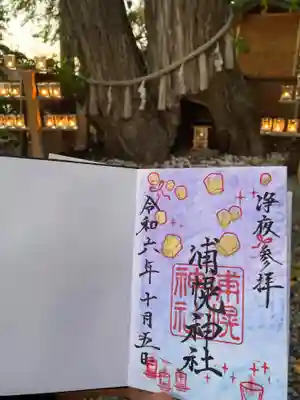 浄夜参拝
浦幌神社
浦幌
神社
令和六年十月五日